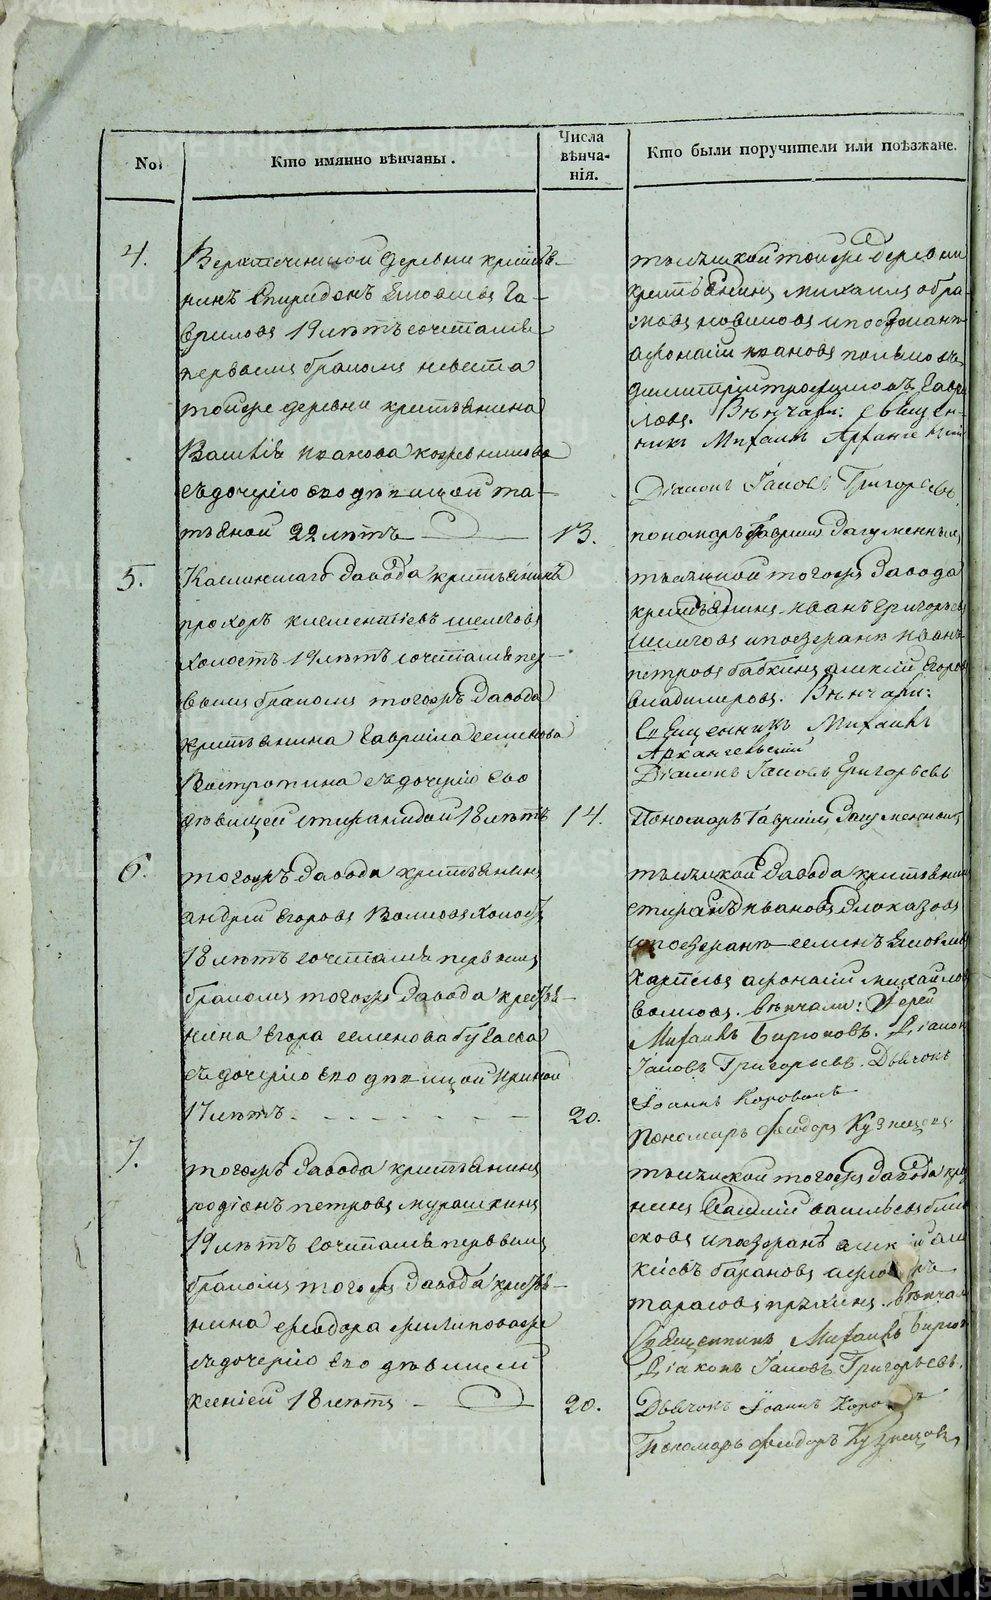 No.
Кто имянно вѣнчаны.
Числа
вѣнча-
нія.
Кто были поручители или поѣзжане.
4.
деревни крестья-
нинъ Спиридонъ Яковлевъ Га-
вриловъ 19 лѣтъ сочетался
первымъ бракомъ невеста
тойже деревни крестьянина
Василія Иванова
съдочерію его дѣвицой та-
тьяной 22 лѣтъ
13.
тысяцкой тойже деревни
крестьянинъ Михаилъ Абра-
мовъ Новиковъ ипоезжанъ
афонасій Ивановъ
димитрій Гаври
ловъ. Вѣнчали: Священ-
никъ Михаилъ Архангельскій
Діаконъ Іаковъ Григорьевъ
пономарь Гавріилъ Загуменныхъ
5.
Каслинскаго Завода крестьянинъ
прохоръ климентіевъ шелеговъ
холостъ 19 лѣтъ сочетался пер-
вымъ бракомъ тогожъ Завода
крестьянина Гавріила семенова
Востротина съдочерію его
дѣвицей степанидой 18 лѣтъ
14.
тысяцкой тогожъ Завода
крестьянинъ иванъ Григорьевъ
шелеговъ ипоезжанъ иванъ
петровъ бабкинъ алексій Егоровъ
владимеровъ. Вѣнчали:
Священникъ Михаилъ
Архангельскій
Діаконъ Іаковъ Григорьевъ
Пономарь Гавріилъ
6.
тогожъ Завода крестьянинъ
андрей Егоровъ Волковъ холостъ
18 лѣтъ сочетался первымъ
бракомъ тогожъ Завода крестья-
нина Егора семенова бугаева
съдочерію его дѣвицой Ириной
17 лѣтъ
20.
тысяцкой Завода крестьянинъ
степанъ ивановъ Блоказовъ
ипоезжанъ семенъ Яковлевъ
Карпевъ афонасій михайловъ
волковъ. вѣнчали: Іерей
Михаилъ Бирюковъ. Діаконъ
Іаковъ Григорьевъ. Дьячокъ
Іоаннъ Коровинъ
Пономарь Феодоръ Кузнецовъ.
7.
тогожъ Завода крестьянинъ
родіонъ петровъ мурашкинъ
19 лѣтъ сочетался первымъ
бракомъ тогожъ Завода крестья-
нина феодора
съдочерію его дѣвицей
ксеніей 18 лѣтъ
20.
тысяцкой тогожъ Завода кре
нинъ Василій васильевъ
ковъ ипоезжанъ
барановъ
тарасовъ пряхинъ. вѣнчали
Священникъ Михаилъ Бирюк
Діаконъ Іаковъ Григорьевъ.
Дьячокъ Іоаннъ
Пономарь Феодоръ Кузнецовъ
METRIKI.GASU-URAL.RU